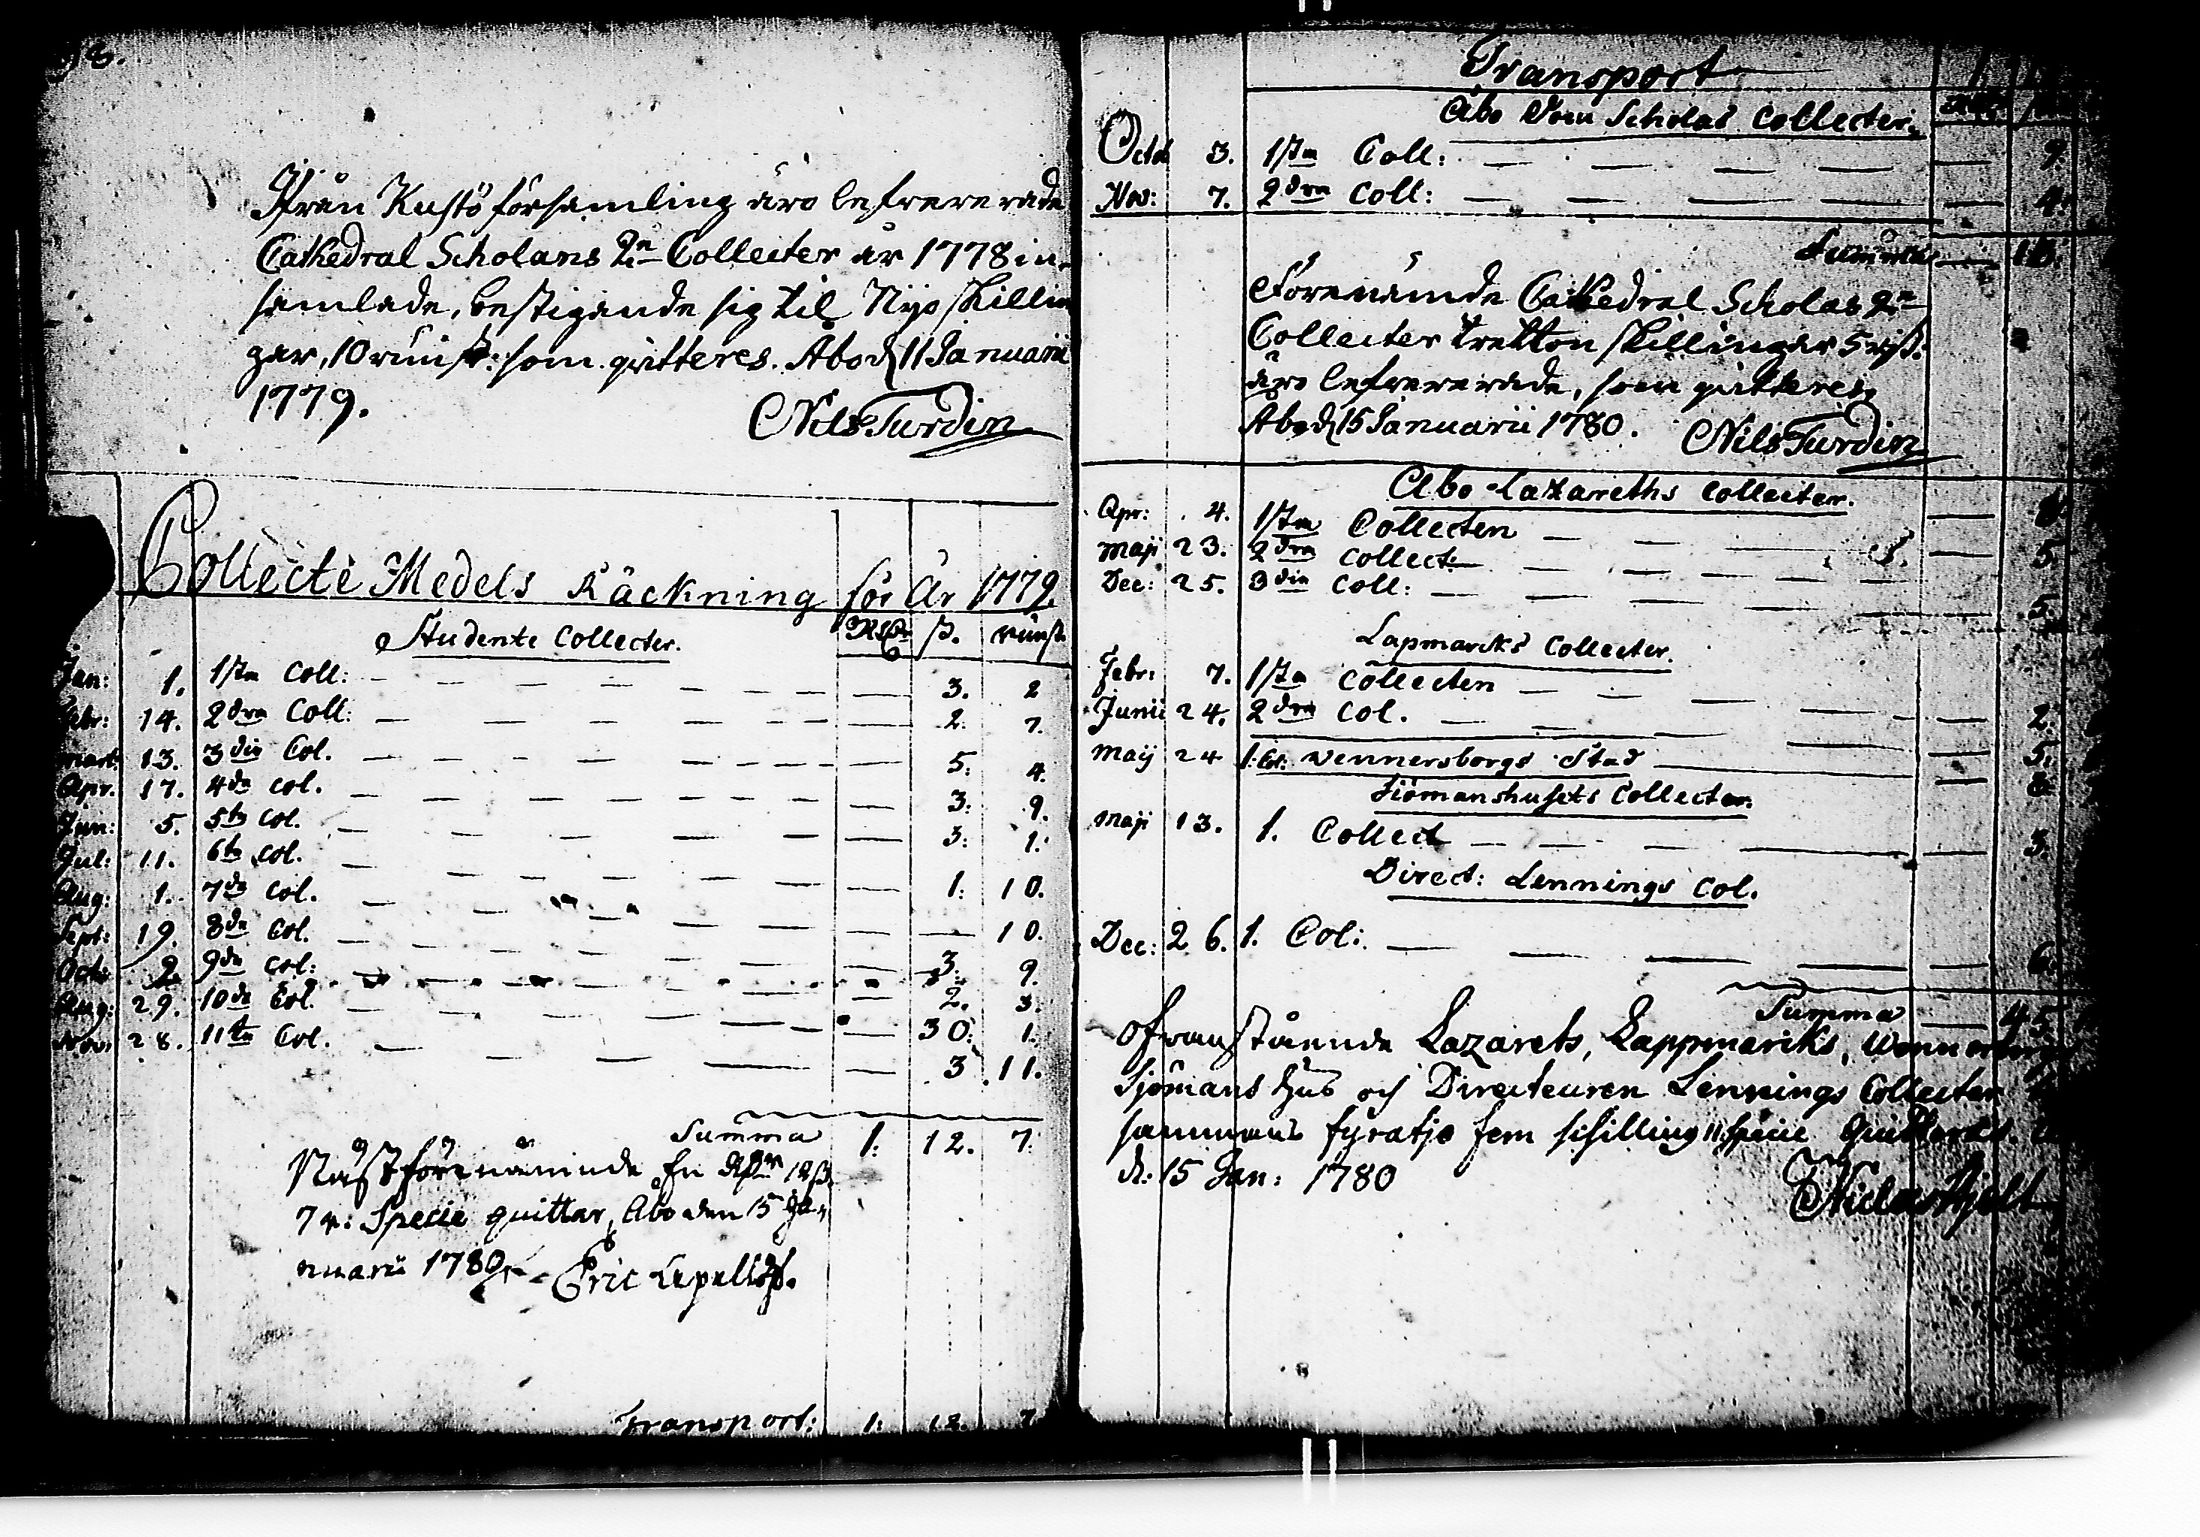 98.
Ifrån Kustö församling äro lefvererade
Cathedral Scholans 2ne Collecter år 1778 in-
samlade, bestigande sig til Nijo skillin
gar, 10 runst: som qvitteres. Åbo d. 11 Januarii
1779.
Nils Turdin
Collecte Medels Räckning för År 1779.
Studente Collecter. RSpr ß. runst.
Jan: 1. 1sta Coll: — 3. 2
Febr: 14. 2dra Coll: — 2. 7.
Mart: 13. 3die Col. — 5. 4.
Apr. 17. 4de Col. — 3. 9.
Jun: 5. 5te Col. — 3. 1.
Jul: 11. 6te Col. — 1. 10.
Aug: 1. 7de Col. — — 10.
Sept: 19. 8de Col. — 3. 9.
Octo: 2. 9de Col: — 2. 3.
Aug: 29. 10de Col. — 30. 1.
Nov: 28. 11te Col. — 3. 11.
Summa 1. 12. 7.
Näst förenämnde En RSpr 12 ß.
7 r: Specie quittar, Åbo den 15 Ja-
nuarii 1780. Eric Lepellóf.
Transport: 1. 12. 7.
Transport
Åbo Dom Scholas Collecter.
Octob 3. 1sta Coll: — 9.
Nov: 7. 2dra Coll: — 4.
Summa — 13.
Förenämde Cathedral Scholas 2ne
Collecter tretton skillingar 5 rst.
äro lefvererade, som qvitteres,
Åbo d. 15 Januarii 1780.
Nils Turdin
Åbo Lazareths Collecter.
Apr: 4. 1sta Collecten —
Maji 23. 2dra Collect: — 5.
Dec: 25. 3die Coll: — 5.
Lapmarcks Collecter.
Febr: 7. 1sta Collecten — 2.
Junii 24. 2dra Col. — 5.
Maij 24 1. Col: Wennersborgs Stad —
Siömanshusets Collecter.
Maji 13. 1. Collect — 3.
Direct: Lennings Col.
Dec: 26. 1. Col: — 6.
Summa — 45
Ofvanstående Lazarets, Lappmarks, Wennersborgs
Sjömans hus och Directeuren Lennings Collecter
sammans fyratio fem schilling 11 Specie Quitteras.
d: 15 Jan: 1780